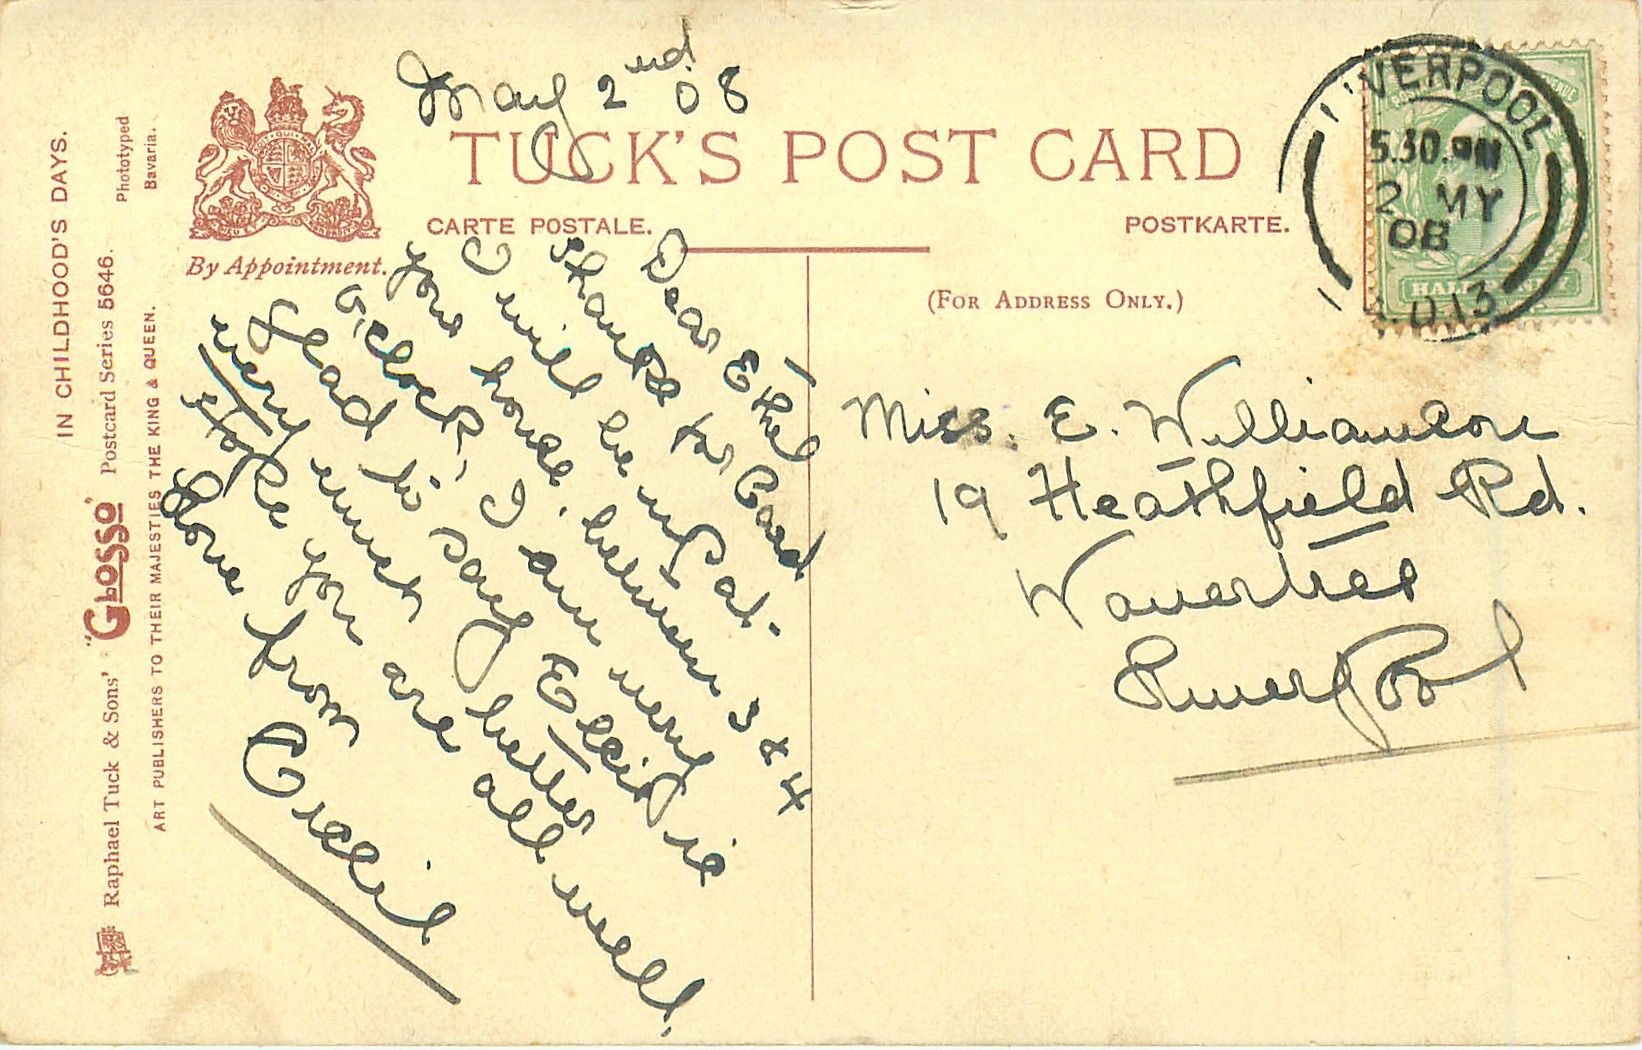 May 2nd 08
TUCK'S POST CARD
CARTE POSTALE.
POSTKARTE.
By Appointment.
(FOR ADDRESS ONLY.)
LIVERPOOL
5.30.PM
2 MY
08
D13
HALFPENNY
Dear Ethel
thanks for Card
I will be up at
your house, between 3 & 4
o,clock, I am very
glad to say Elsie is
very much better
hope you are all well.
Love from
Cissie
Miss. E. Williamson
19 Heathfield Rd.
Wavertree
Liverpool
IN CHILDHOOD'S DAYS.
Raphael Tuck & Sons' "Glosso" Postcard Series 5646.
Phototyped
Bavaria.
ART PUBLISHERS TO THEIR MAJESTIES THE KING & QUEEN.